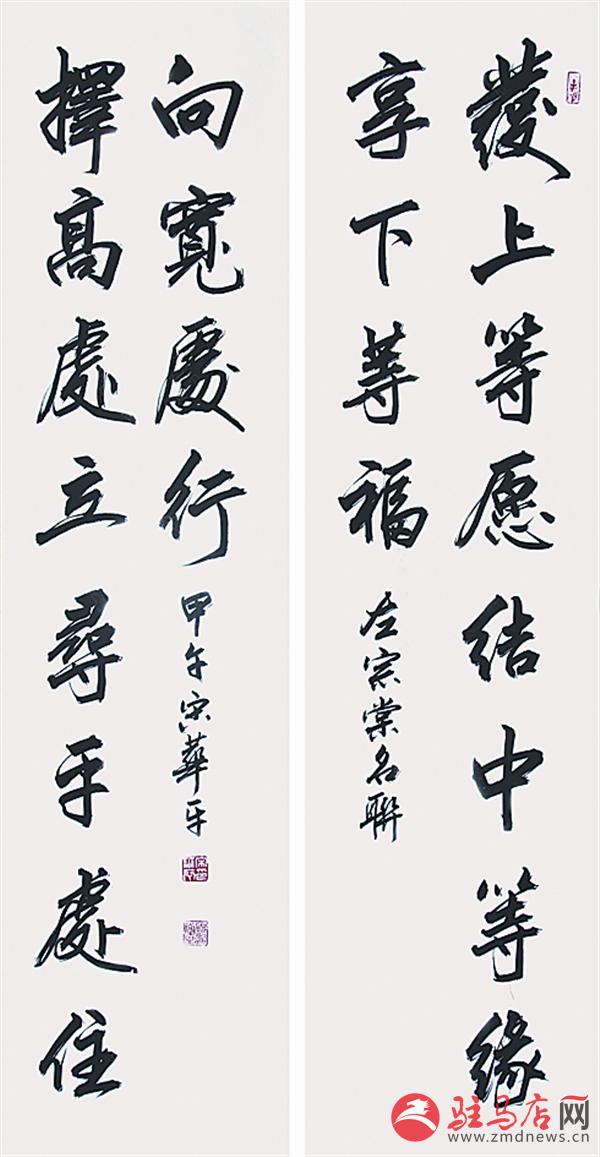 發上等愿結中等緣
享下等福
左宗棠名聯
擇高處立尋平處住
向寬處行
甲午宋華平
驻马店网
www.zmdnews.cn